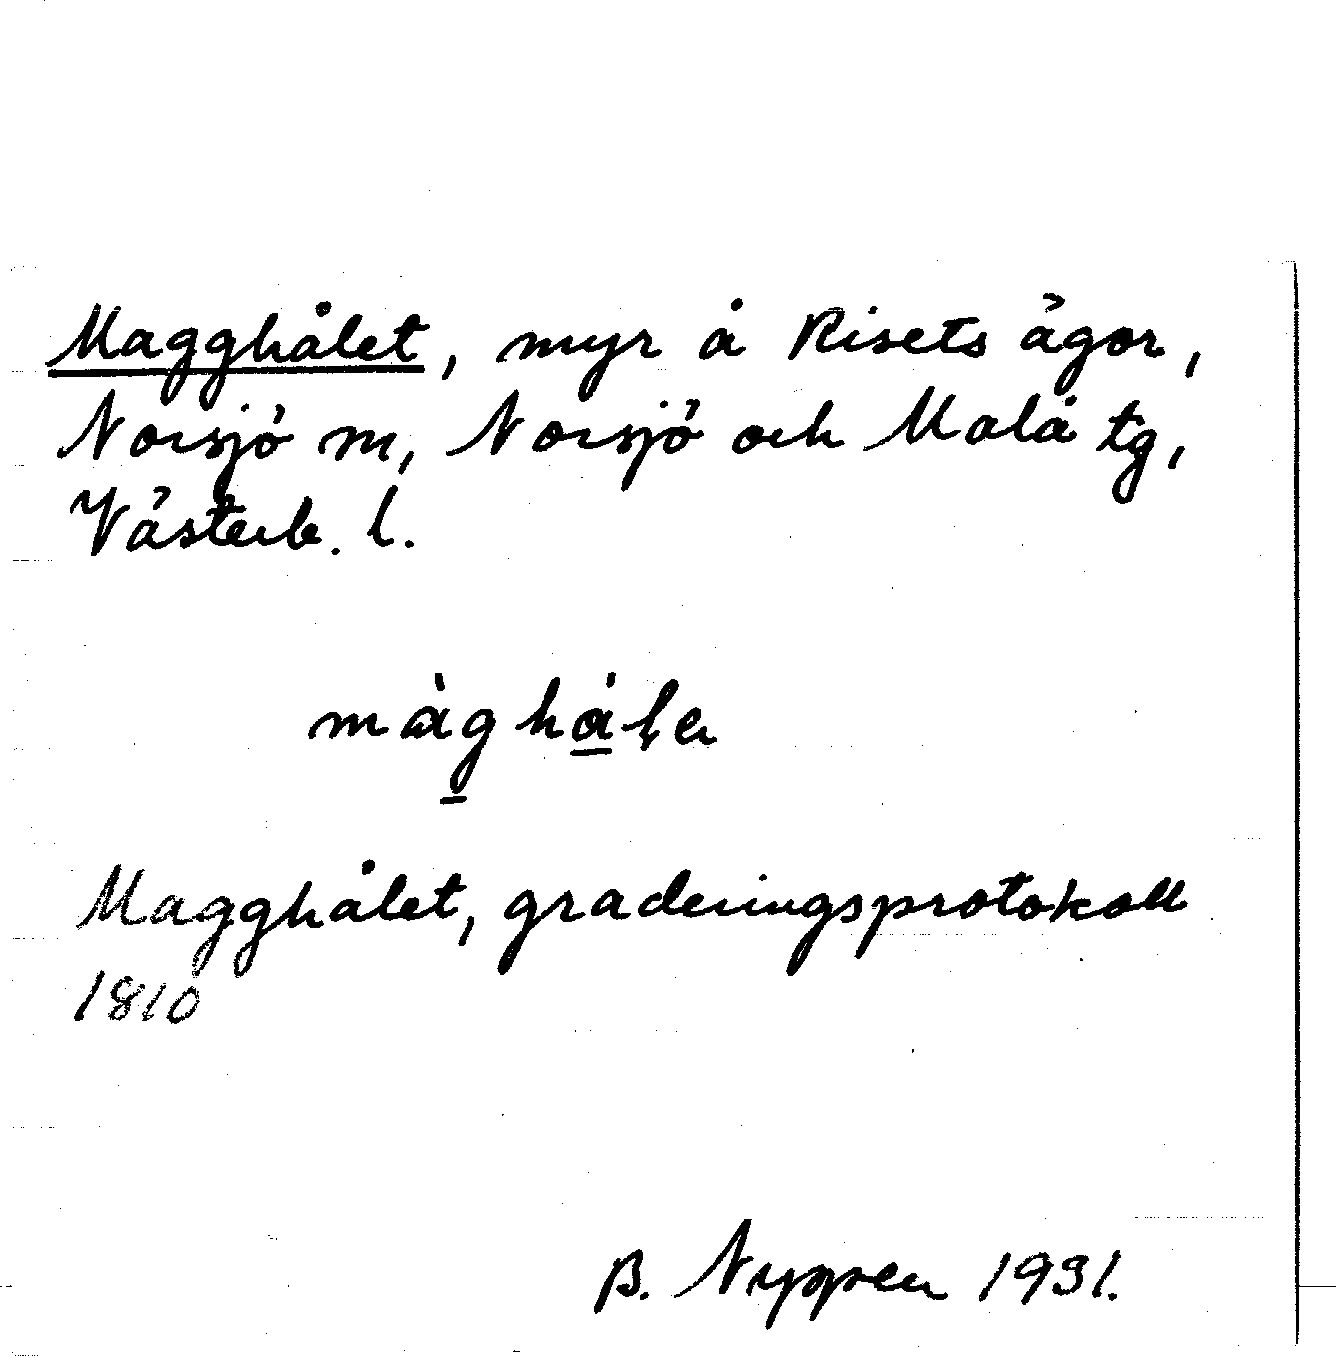 Magghålet, myr å Risets ägor,
Norsjö m, Norsjö och Malå tg,
Västerb. l.
màghàlen
Magghålet, graderingsprotokoll
1810
B. Nyppen 1931.